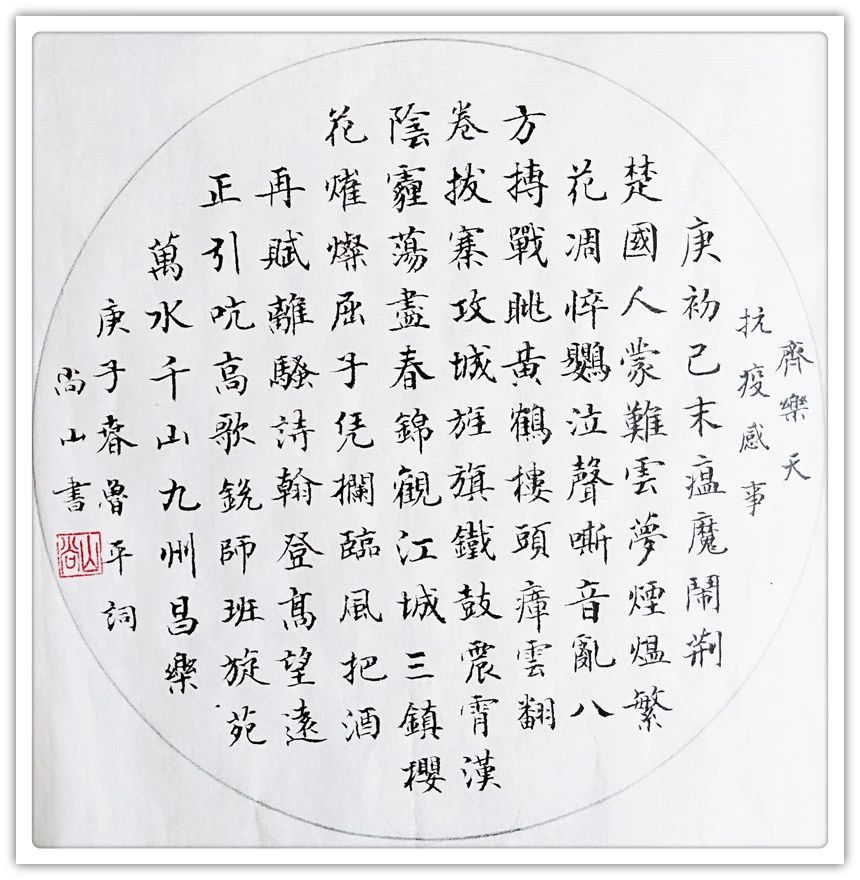 齊樂天
抗疫感事
庚初己末瘟魔鬧荆
楚國人蒙難雲夢煙煴繁
花凋悴鸚泣聲嘶音亂八
方搏戰眺黃鶴樓頭瘴雲翻
卷拔寨攻城旌旗鐵鼓震霄漢
陰霾蕩盡春錦觀江城三鎮櫻
花燿燦屈子凭欄臨風把酒
再賦離騷詩翰登高望遠
正引吭高歌銳師班旋苑
萬水千山九州昌樂
庚子春魯平詞
尚山書
尚山